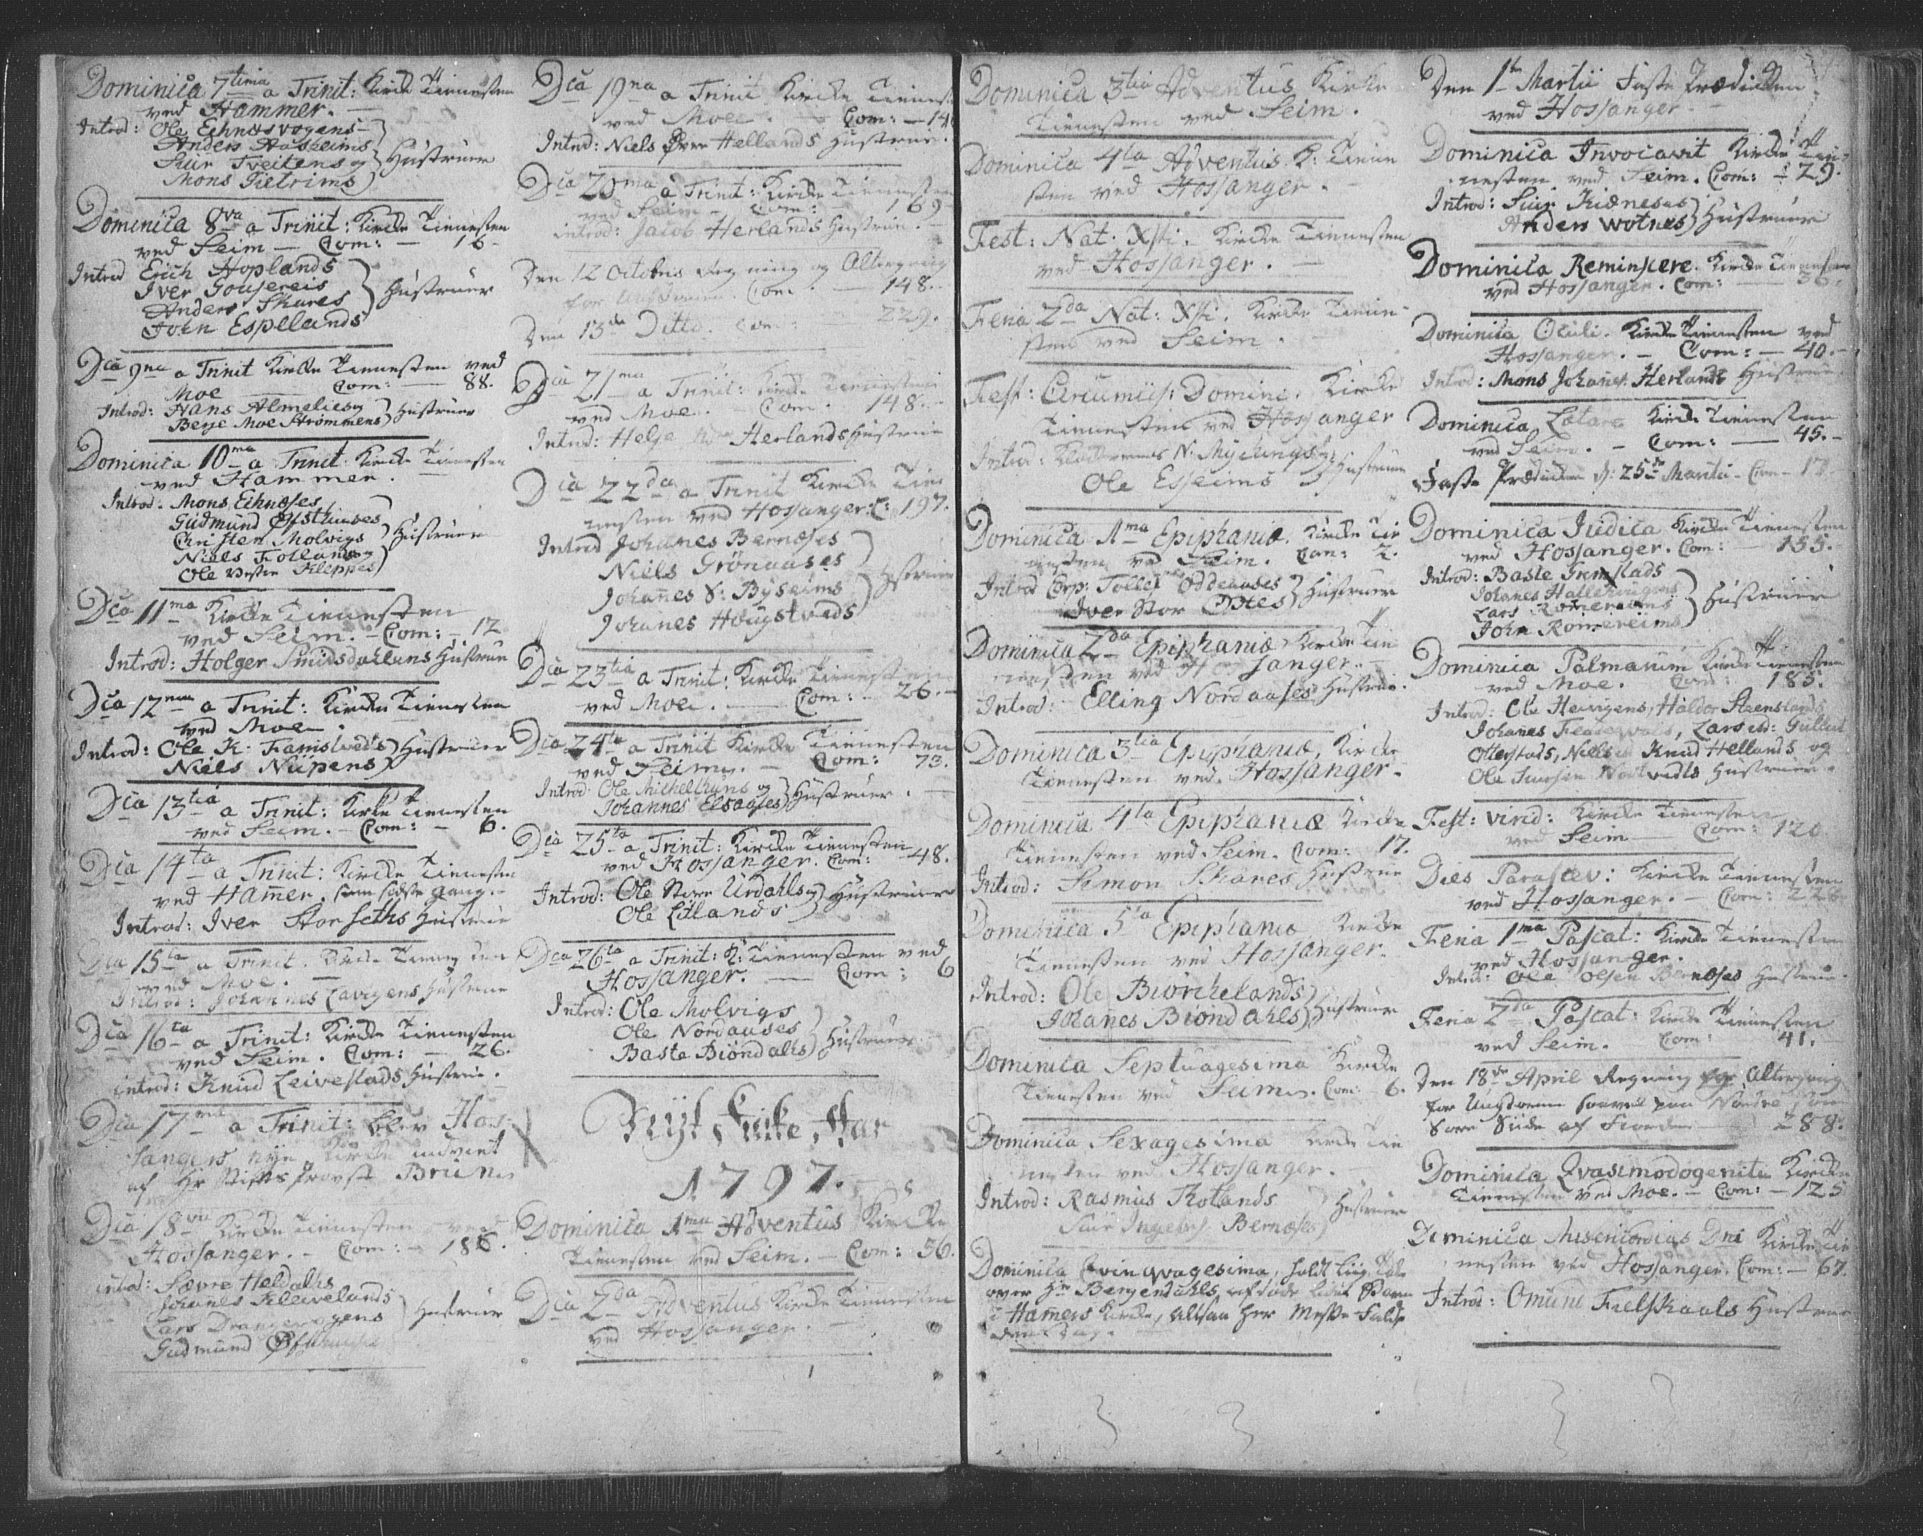 Dominica 7tima a Trinit: Kircke Tienesten
ved Hammer.
Introd: Ole Eknæsvogens
Anders Aasheims
Siur Tveitens og
Mons Tietrims
Hustruer
Dominica 8va a Trinit: Kircke Tienesten
ved Seim — Com: — 16
Introd Erich Hoplands
Iver
Anders Skares
John Espelands
Hustruer
Dca 9na a Trinit Kircke Tienesten ved
Moe Com: — 88.
Introd: Hans Almelies og
Berje Moe Strømmens
Hustruer
Dominica 10ma a Trinit: Kircke Tienesten
ved Hammer.
Introd: Mons Eknæses
Gudmund Øfsthuses
Christen Molvigs
Niels Totlands og
Ole Kleppes
Hustruer
Dca 11ma Kircke Tienesten
ved Seim. — Com: — 12
Introd: Holger Smidsdahlens Hustrue
Dca 12ma a Trinit: Kircke Tienesten
ved Moe.
Introd: Ole K: Famstveds
Niels Nüpens
Hustruer
Dca 13tia a Trinit: Kircke Tienesten
ved Seim. — Com: — 6.
Dca 14ta a Trinit: Kircke Tienesten
ved Hamer, som sidste gang.
Introd: Iver Storseths Hustrue
Dca 15ta a Trinit. Kircke Tienesten
ved Moe.
Introd: Johannes Lavigens Hustrue
Dca 16ta a Trinit: Kircke Tienesten
ved Seim. Com: — 26.
introd: Knud Leivestads Hustrue.
Dca 17ma a Trinit: blev Hos-
sangers nye Kirke indviet
af Hr Stiftsprovst Brun.
Dca 18va Kircke Tienesten ved
Hossanger. — Com: — 186.
introd: Sævre Heldahls
Johanes Kleivelands
Lars Drangevogens
Gudmund
Hustruer
Dca 19na a Trinit Kircke Tienest
ved Moe. Com: — 14
Introd: Niels Øvre Hellands Hustrue.
Dca 20ma a Trinit: Kircke Tienesten
ved Seim Com: 169
introd: Jacob Herlands Hustrue.
Den 12 Octobris Regning og Altergang
for Com. 148.
Den 13de Ditto. Com: 229.
Dca 21ma a Trinit: Kircke Tienesten
ved Moe. Com. 148.
Introd: Helje Herlands Hustrue
Dca 22da a Trinit Kircke Tien
nesten ved Hossanger: C: 197.
Introd Johanes Bernæses
Niels Grönaases
Johanes S: Byseims
Johanes Hougstveds
Hustruer
Dca 23tia a Trinit: Kircke Tienesten
ved Moe. — Com: 26.
Dca 24ta a Trinit Kircke Tienesten
ved Seim. — Com: 73.
Introd: Ole Mickelthuns og
Johannes Elsaases
Hustruer.
Dca 25ta a Trinit: Kircke Tienesten
ved Hossanger. Com: 48.
Introd: Ole Store Urdahls og
Ole Litlands
Hustruer
Dca 26ta a Trinit: K: Tienesten ved
Hossanger. — Com: 6
Introd: Ole Molvigs
Ole Nordaases
Baste Biöndahls
Hustruer
Nyt Kirke Aar
1797.
Dominica 1ma Adventus Kircke
Tienesten ved Seim. — Com: 56.
Dca 2da Adventus Kircke Tienesten
ved Hossanger.
Dominica 3tia Adventus Kircke
Tienesten ved Seim.
Dominica 4ta Adventus K: Tiene
sten ved Hossanger.
Fest: Nat. Xsti. Kircke Tienesten
ved Hossanger.
Feria 2da Nat: Xsti. Kircke Tiene-
sten ved Seim.
Fest: Circumcis: Domini. Kircke
Tienesten ved Hossanger
Introd: Klockerens N. Myckings
Ole Esseims
Hustruer
Dominica 1ma Epiphaniæ. Kircke Tie
nesten ved Seim. Com: 2.
Introd Corp: Tollef Oddenæses
Iver Stor
Hustruer
Dominica 2da Epiphaniæ Kircke Tie
nesten ved Hossanger.
Introd: Elling Nordaases Hustrue.
Dominica 3tia Epiphaniæ, Kircke
Tienesten ved Hossanger.
Dominica 4ta Epiphaniæ Kircke
Tienesten ved Seim. Com: 17.
Introd: Simon Skares Hustrue
Dominica 5ta Epiphaniæ Kircke
Tienesten ved Hossanger.
Introd: Ole Biörckelands
Johanes Biöndahls
Hustruer
Dominica Septuagesima Kircke
Tienesten ved Seim. Com: 6.
Dominica Sexagesima Kircke Tie
nesten ved Hossanger.
Introd: Rasmus Rotlands
Siur Ingebr: Bernæses
Hustruer
Dominica Qvinqvagesima, holdt Liig Tale
over Hr Bergendahls afdøde lidet Barn
i Hamers Kirke, altsaa her Messe-Fald
denne Dag.
Den 1te Martii Faste Prædicken
ved Hossanger
Dominica Invocavit Kircke Tie-
nesten ved Seim. Com: — 29.
Introd: Siur Kidneses
Anders Wotnes
Hustruer
Dominica Reminscere. Kircke Tienesten
ved Hossanger. Com: — 56.
Dominica Oculi. Kircke Tienesten ved
Hossanger. — Com: — 40.
Introd: Mons Johanes. Herlands Hustrue.
Dominica Lætare Kircke Tienesten
ved Seim. — Com: — 45.
Faste Prædicken d: 25de Martii — Com — 17.
Dominica Judica Kircke Tienesten
ved Hossanger. Com: — 155.
Introd: Baste Grimstads
Johanes Hallevigens
Lars Romereims
John Romereims
Hustruer
Dominica Palmarum Kircke Tienesten
ved Moe. Com: 185.
Introd: Ole Heivigens, Haldor Steenslands
Johanes
Otterstads, Niels Knud Hellands og
Ole Hustruer.
Fest: virid: Kircke Tienesten
ved Seim — Com: 120.
Dies Parascev: Kircke Tienesten
ved Hossanger. — Com: 226.
Feria 1ma Pascat: Kircke Tienesten
ved Hossanger.
Introd: Ole Olsen Bernæses Hustrue
Feria 2da Pascat: Kircke Tienesten
ved Seim. Com: 41.
Den 18de April Regning og Altergang
for Ungdomen saavel paa Nordre som
Søre Side af Fiorden 288.
Dominica Qvasimodogeniti Kircke
Tienesten ved Moe. — Com: — 125
Dominica Misericordias Dni Kircke Tie
nesten ved Hossanger. Com: — 67.
Introd: Omund Fielskaals Hustrue